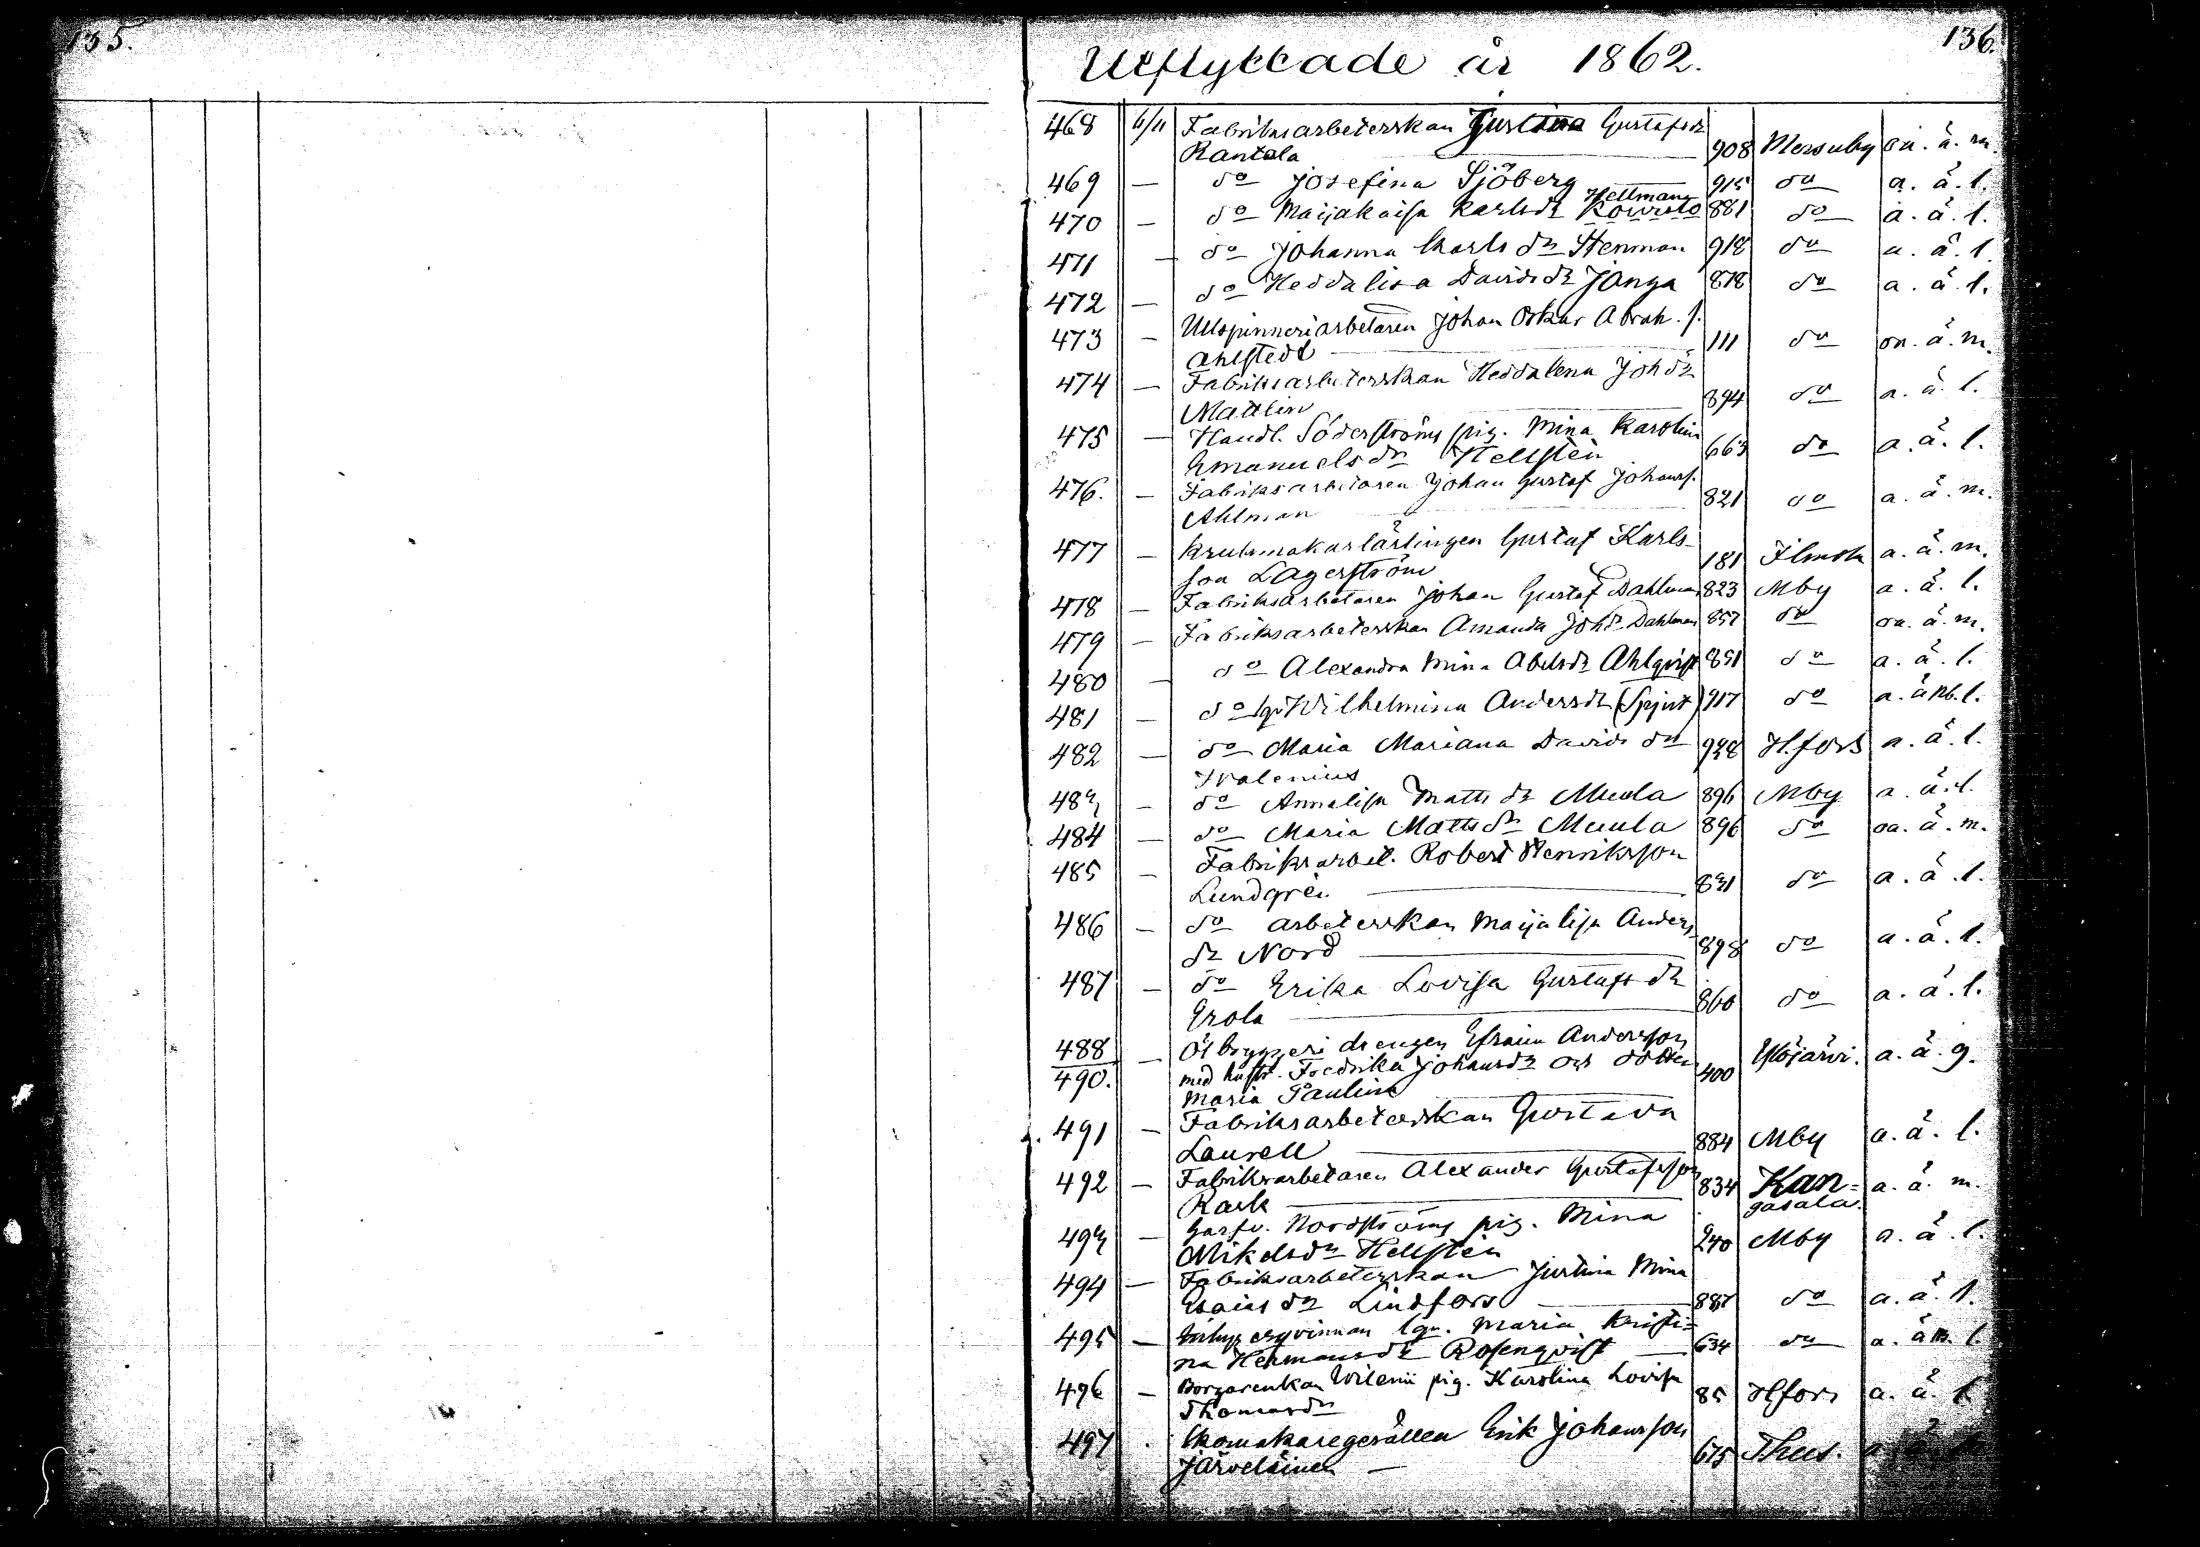 135.
136.
Utflyttade år 1862.
468 6/11 Fabriksarbeterskan Justina Gustafsdr
Rantala 908 Messuby oa. ä. m.
469 — do Josefina Sjöberg 915 do a. ä. l.
Hellman
470 — do Maijakaisa Karlsdr Kouvisto 881 do a. ä. l.
471 — do Johanna Karls dr Stenman 918 do a. ä. l.
472 — do Heddalisa Davidsdr Janga 878 do a. ä. l.
473 — Ullspinneriarbetaren Johan Oskar Abrah. s.
Ahlstedt 111 do oa. ä. m.
474 — Fabriksarbeterskan Heddalena Joh dr
Mattlin 894 do a. ä. l.
475 — Handl. Söderströms pig. Mina Karolin
Emanuels dr Hellstèn 663 do a. ä. l.
476. — Fabriksarbetaren Johan Gustaf Johanss.
Ahlman 821 do a. ä. m.
477 — Krukmakarlärlingen Gustaf Karls-
son Lagerström 181 Ilmola a. ä. m.
478 — Fabriksarbetaren Johan Gustaf Dahlman 823 Mby a. ä. l.
479 — Fabriksarbeterskan Amanda Johdr Dahlman 857 do oa. ä. m.
480 — do Alexandra Mina Abelsdr Ahlqvist 851 do a. ä. l.
481 — do lqv Wilhelmina Andersdr (Spjut) 917 do a. ä nb. l.
482 — do Maria Mariana Davids dr 928 H.fors a. ä. l.
Walenius
483 — do Annalisa Matts dr Muula 896 Mby a. ä. l.
484 — do Maria Matts dr Muula 896 do oa. ä. m.
485 — Fabriksarbet. Robert Henriksson
Lundgrèn 831 do a. ä. l.
486 — do arbeterskan Maijalisa Anders
dr Nord 898 do a. ä. l.
487 — do Erika Lovisa Gustafs dr
Erola 860 do a. ä. l.
488 — Ölbryggeri drengen Efraim Andersson
490. med hustr. Fredrika Johansdr och dottren 400 Ylöjärvi. a. ä. g.
Maria Paulina
491 — Fabriksarbeterskan Gustava
Laurell 884 Mby a. ä. l.
492 — Fabriksarbetaren Alexander Gustafsson
Rask 834 Kan=
gasala. a. ä. m.
493 — Garfv. Nordströms pig. Mina
Mikelsdr Hellstèn 240 Mby a. ä. l.
494 — Fabriksarbeterskan Justina Mina
Esaias dr Lindfors 887 do a. ä. l.
495 — lqv. Maria Kristi=
na Hermansdr Rosenqvist 634 do a. ä nb. l.
496 — Borgarenkan Wilenii pig. Karolina Lovisa
Thomasdr 85 H.fors a. ä. l.
497 Skomakaregesällen Erik Johansson
Järveläinen 675 Thus.